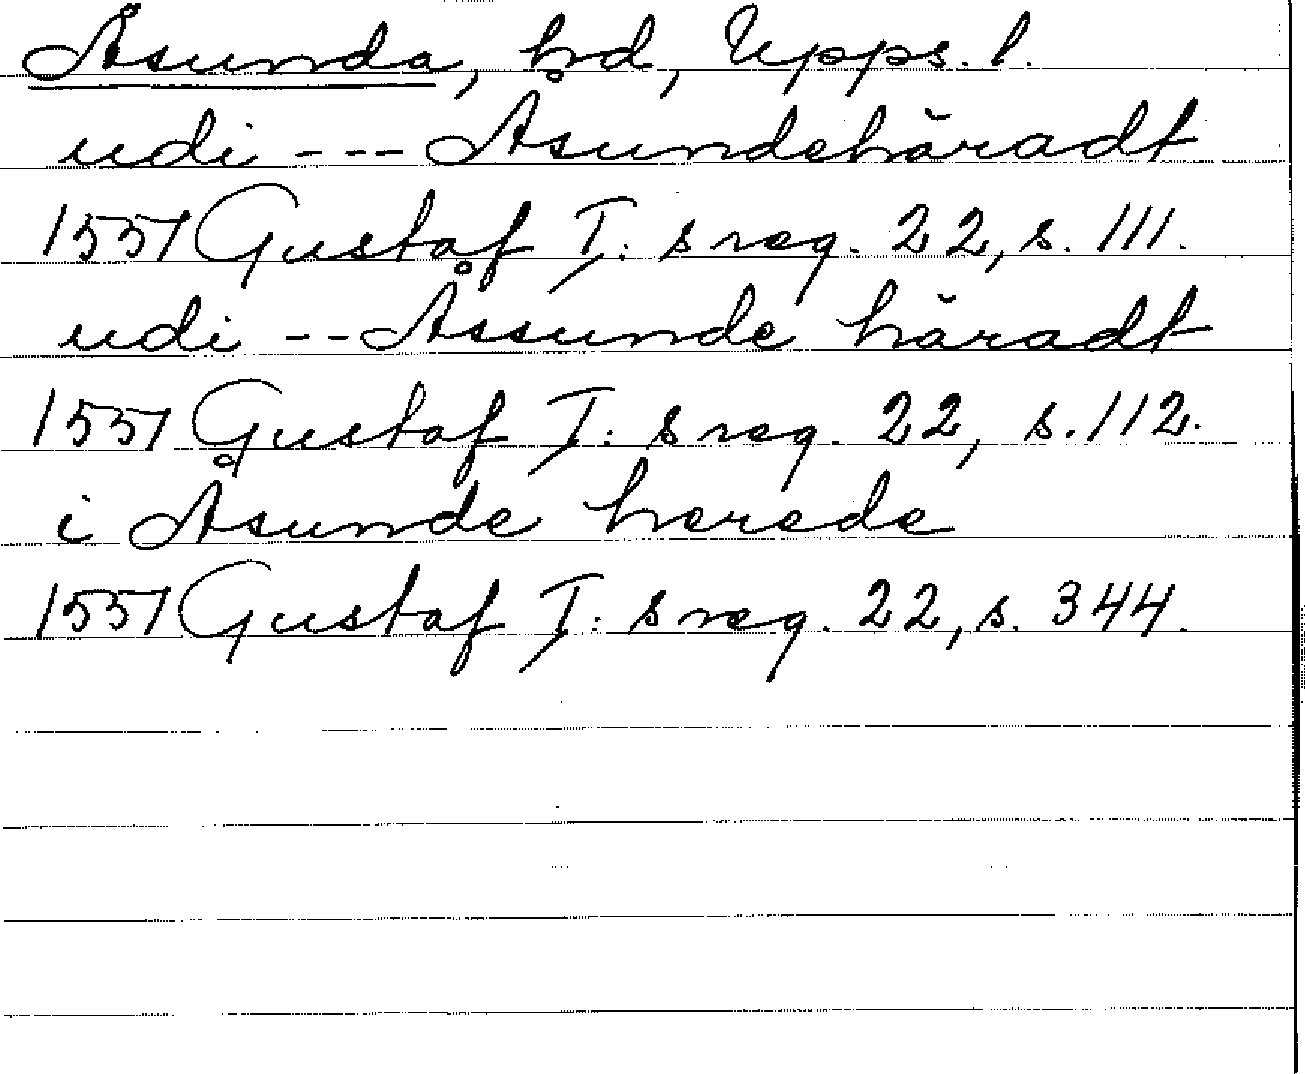 Åsunda, hd, Upps. l.
udi --- Åsundehăradt
1551 Gustaf I: s reg. 22, s. 111.
udi -- Åssunde hăradt
1551 Gustaf I: s reg. 22, s. 112.
i Åsunde herede
1551 Gustaf I: s reg. 22, s. 344.